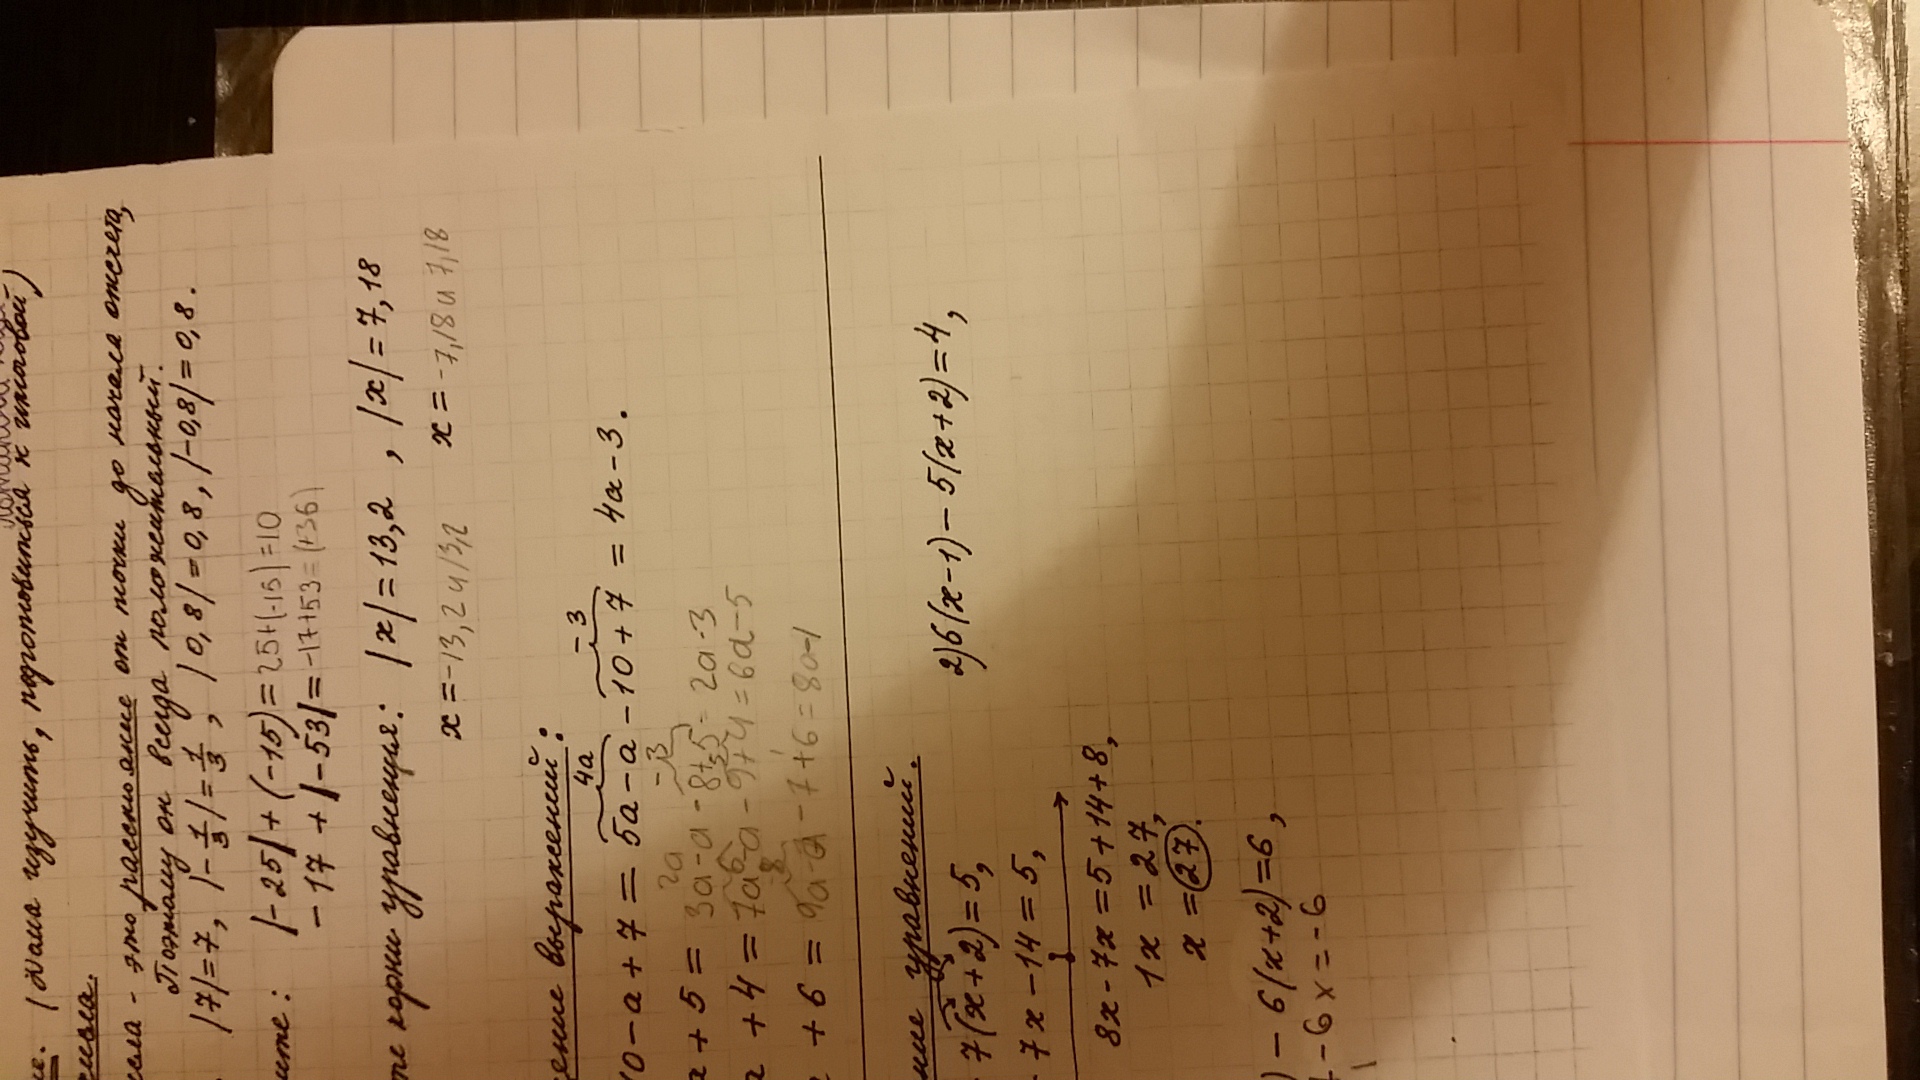 (Дома изучить, подготовиться к итоговой)
это расстояние от точки до начала отсчёта,
Поэтому он всегда положительный.
|7|=7, |-1/3|=1/3, |0,8|=0,8, |-0,8|=0,8.
|-25|+(-15)=25+(-15)=10
-17+|-53|=-17+53=(+36)
корни уравнения: |x|=13,2 , |x|=7,18
x=-13,2 и 13,2 x=-7,18 и 7,18
выражений:
4a -3
10-a+7=5a-a-10+7=4a-3.
2a -3
+5=3a-a-8+5=2a-3
+4=7a-a-9+4=6a-5
+6=9a-a-7+6=8a-1
уравнений.
7(x+2)=5, 2)6(x-1)-5(x+2)=4,
7x-14=5,
8x-7x=5+14+8,
1x=27,
x=27.
-6(x+2)=6,
-6x=-6